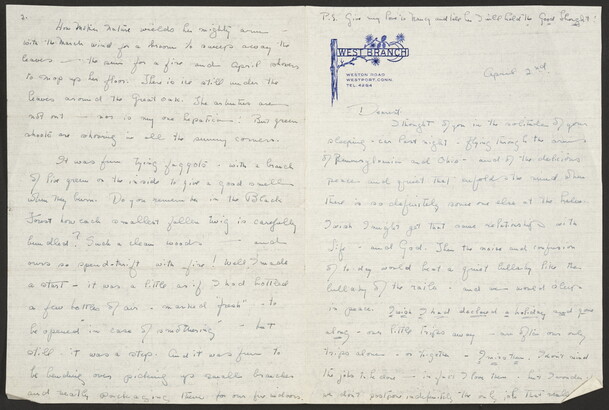 2.
How Mother Nature wields her mighty arm -
with the March wind for a broom to sweep away the
leaves — the sun for a fire and April showers
to mop up her floor. There is ice still under the
leaves around the Great Oak. The arbutus are
not out — nor is my one hepatica! But green
shoots are showing in all the sunny corners.
It was fun tying faggots - with a branch
of fire green on the inside to give a good smell
when they burn. Do you remember in the Black
Forest how each smallest fallen twig is carefully
bundled? Such a clean woods — and
ours so spendthrift with fire! Well, I made
a start - it was a little as if I had bottled
a few bottles of air - marked "fresh" - to
be opened in case of smothering - but
still it was a step. And it was fun to
be bending over picking up small branches
and neatly packaging them for our fire
P.S. Give my love to Nancy and tell her I still hold the Good Thought!
WEST BRANCH
WESTON ROAD
WESTPORT, CONN.
TEL. 4264
April 2nd
Dearest
I thought of you in the solitude of your
sleeping-car last night - flying through the
of Pennsylvania and Ohio - and of the delicious
peace and quiet that enfolds the mind when
there is so definitely some one else at the
I wish I might get that same relationship with
Life - and God. Then the noise and confusion
of to-day would be a quiet lullaby like the
lullaby of the rails - and we would sleep
in peace. I wish I had declared a holiday and gone
along - our little trips away - are often our only
trips alone - or together - I
the jobs to be done — in fact I love them - but I wonder
we don't postpone indefinitely the only job that